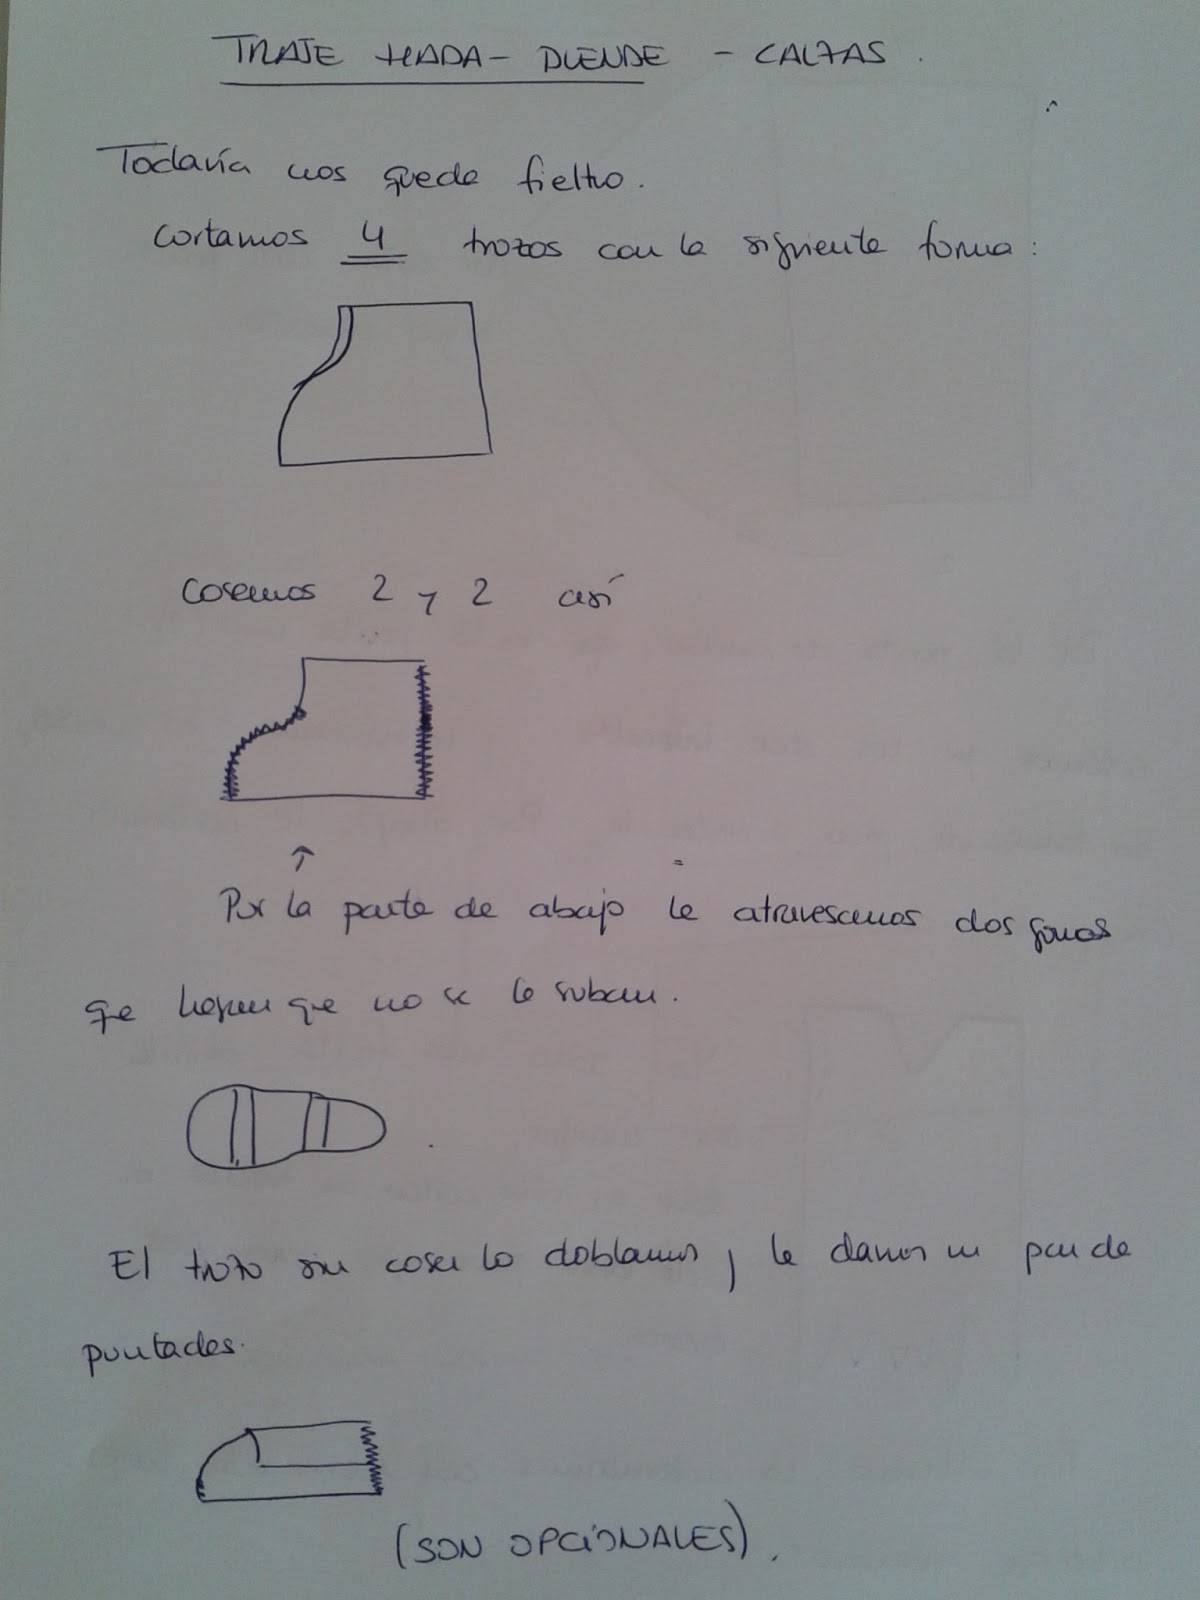 TRAJE HADA - DUENDE - CALZAS.
Todavía nos queda fieltro.
Cortamos 4 trozos con la siguiente forma:
Cosemos 2 y 2 así
Por la parte de abajo le atravesamos dos gomas
que hagan que no se le suban.
El trozo sin coser lo doblamos y le damos un par de
puntadas.
(SON OPCIONALES).